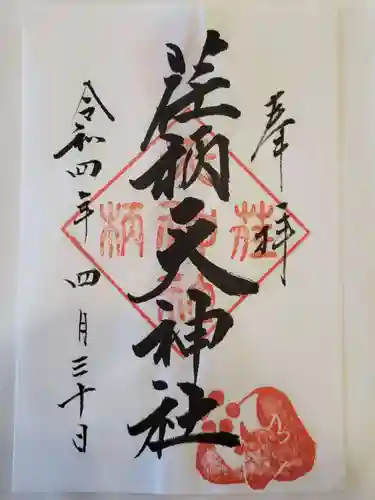 奉拝
荏柄天神社
令和四年四月三十日
荏
柄